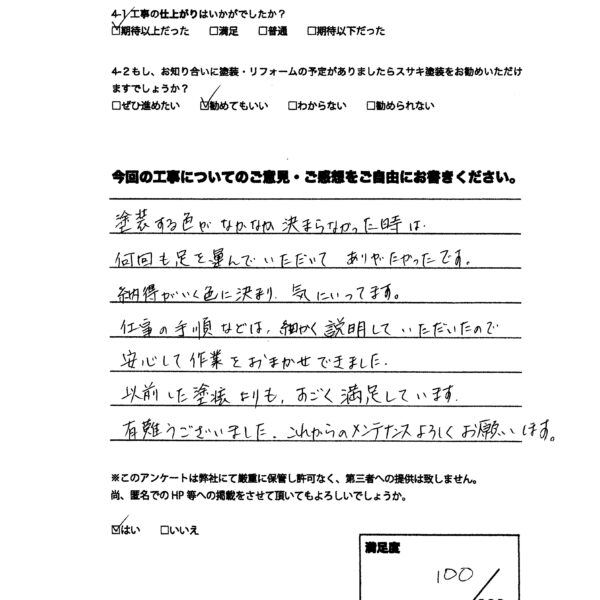 4-1 工事の仕上がりはいかがでしたか？
☑期待以上だった □満足 □普通 □期待以下だった
4-2 もし、お知り合いに塗装・リフォームの予定がありましたらスサキ塗装をお勧めいただけ
ますでしょうか？
□ぜひ進めたい ☑勧めてもいい □わからない □勧められない
今回の工事についてのご意見・ご感想をご自由にお書きください。
塗装する色がなかなか決まらなかった時は
何回も足を運んでいただいてありがたかったです。
納得がいく色に決まり、気にいってます。
仕事の手順などは、細かく説明していただいたので
安心して作業をおまかせできました。
以前した塗装よりも、すごく満足しています。
有難うございました。これからのメンテナンスよろしくお願いします。
※このアンケートは弊社にて厳重に保管し許可なく、第三者への提供は致しません。
尚、匿名でのHP等への掲載をさせて頂いてもよろしいでしょうか。
☑はい □いいえ
満足度
100